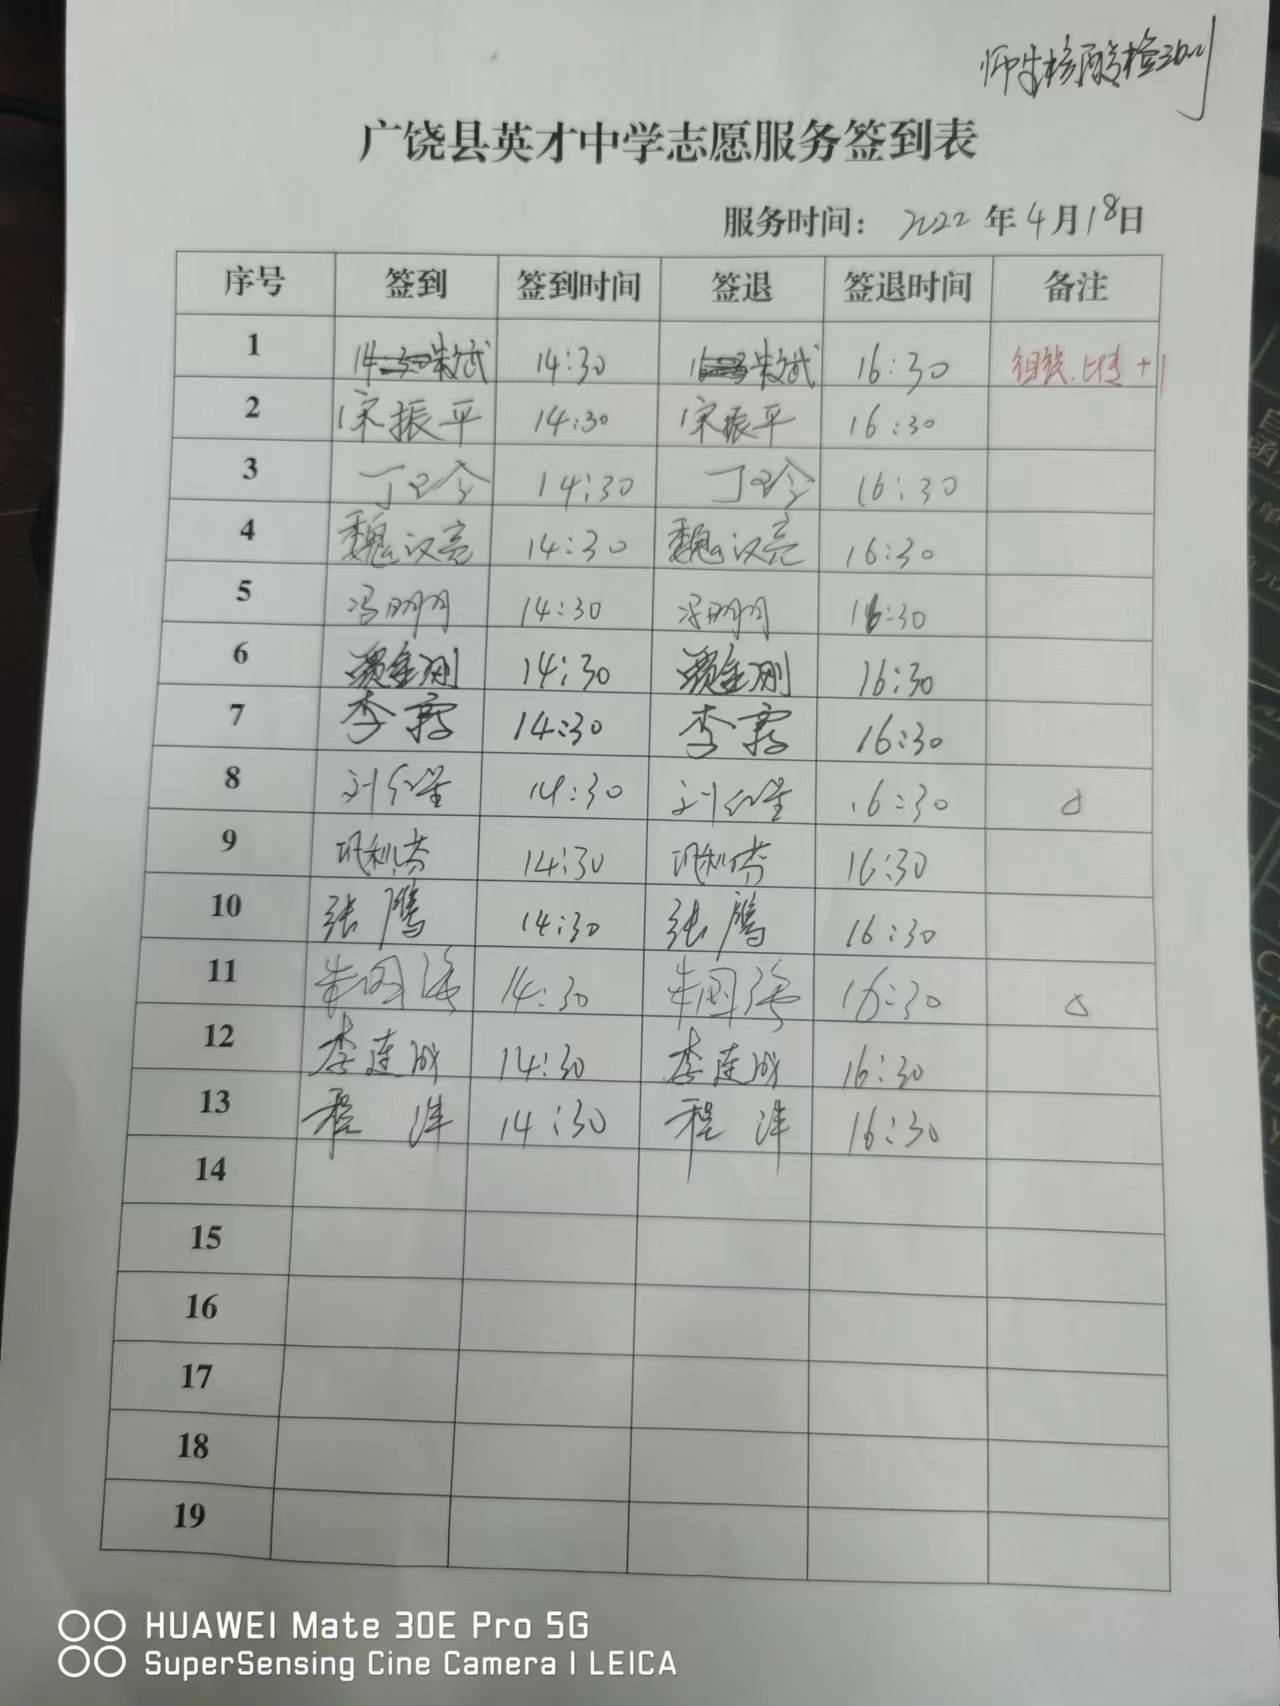 师生核酸检测
广饶县英才中学志愿服务签到表
服务时间： 2022 年 4 月 18 日
序号 签到 签到时间 签退 签退时间 备注
1 朱斌 14:30 朱斌 16:30 组织. +1
2 宋振平 14:30 宋振平 16:30
3 丁卫玲 14:30 丁卫玲 16:30
4 魏汉亮 14:30 魏汉亮 16:30
5 冯明明 14:30 冯明明 16:30
6 贾金刚 14:30 贾金刚 16:30
7 李霞 14:30 李霞 16:30
8 刘红星 14:30 刘红星 16:30 △
9 巩利芬 14:30 巩利芬 16:30
10 张鹰 14:30 张鹰 16:30
11 朱国强 14:30 朱国强 16:30 △
12 李连成 14:30 李连成 16:30
13 程洋 14:30 程洋 16:30
14
15
16
17
18
19
HUAWEI Mate 30E Pro 5G
SuperSensing Cine Camera | LEICA